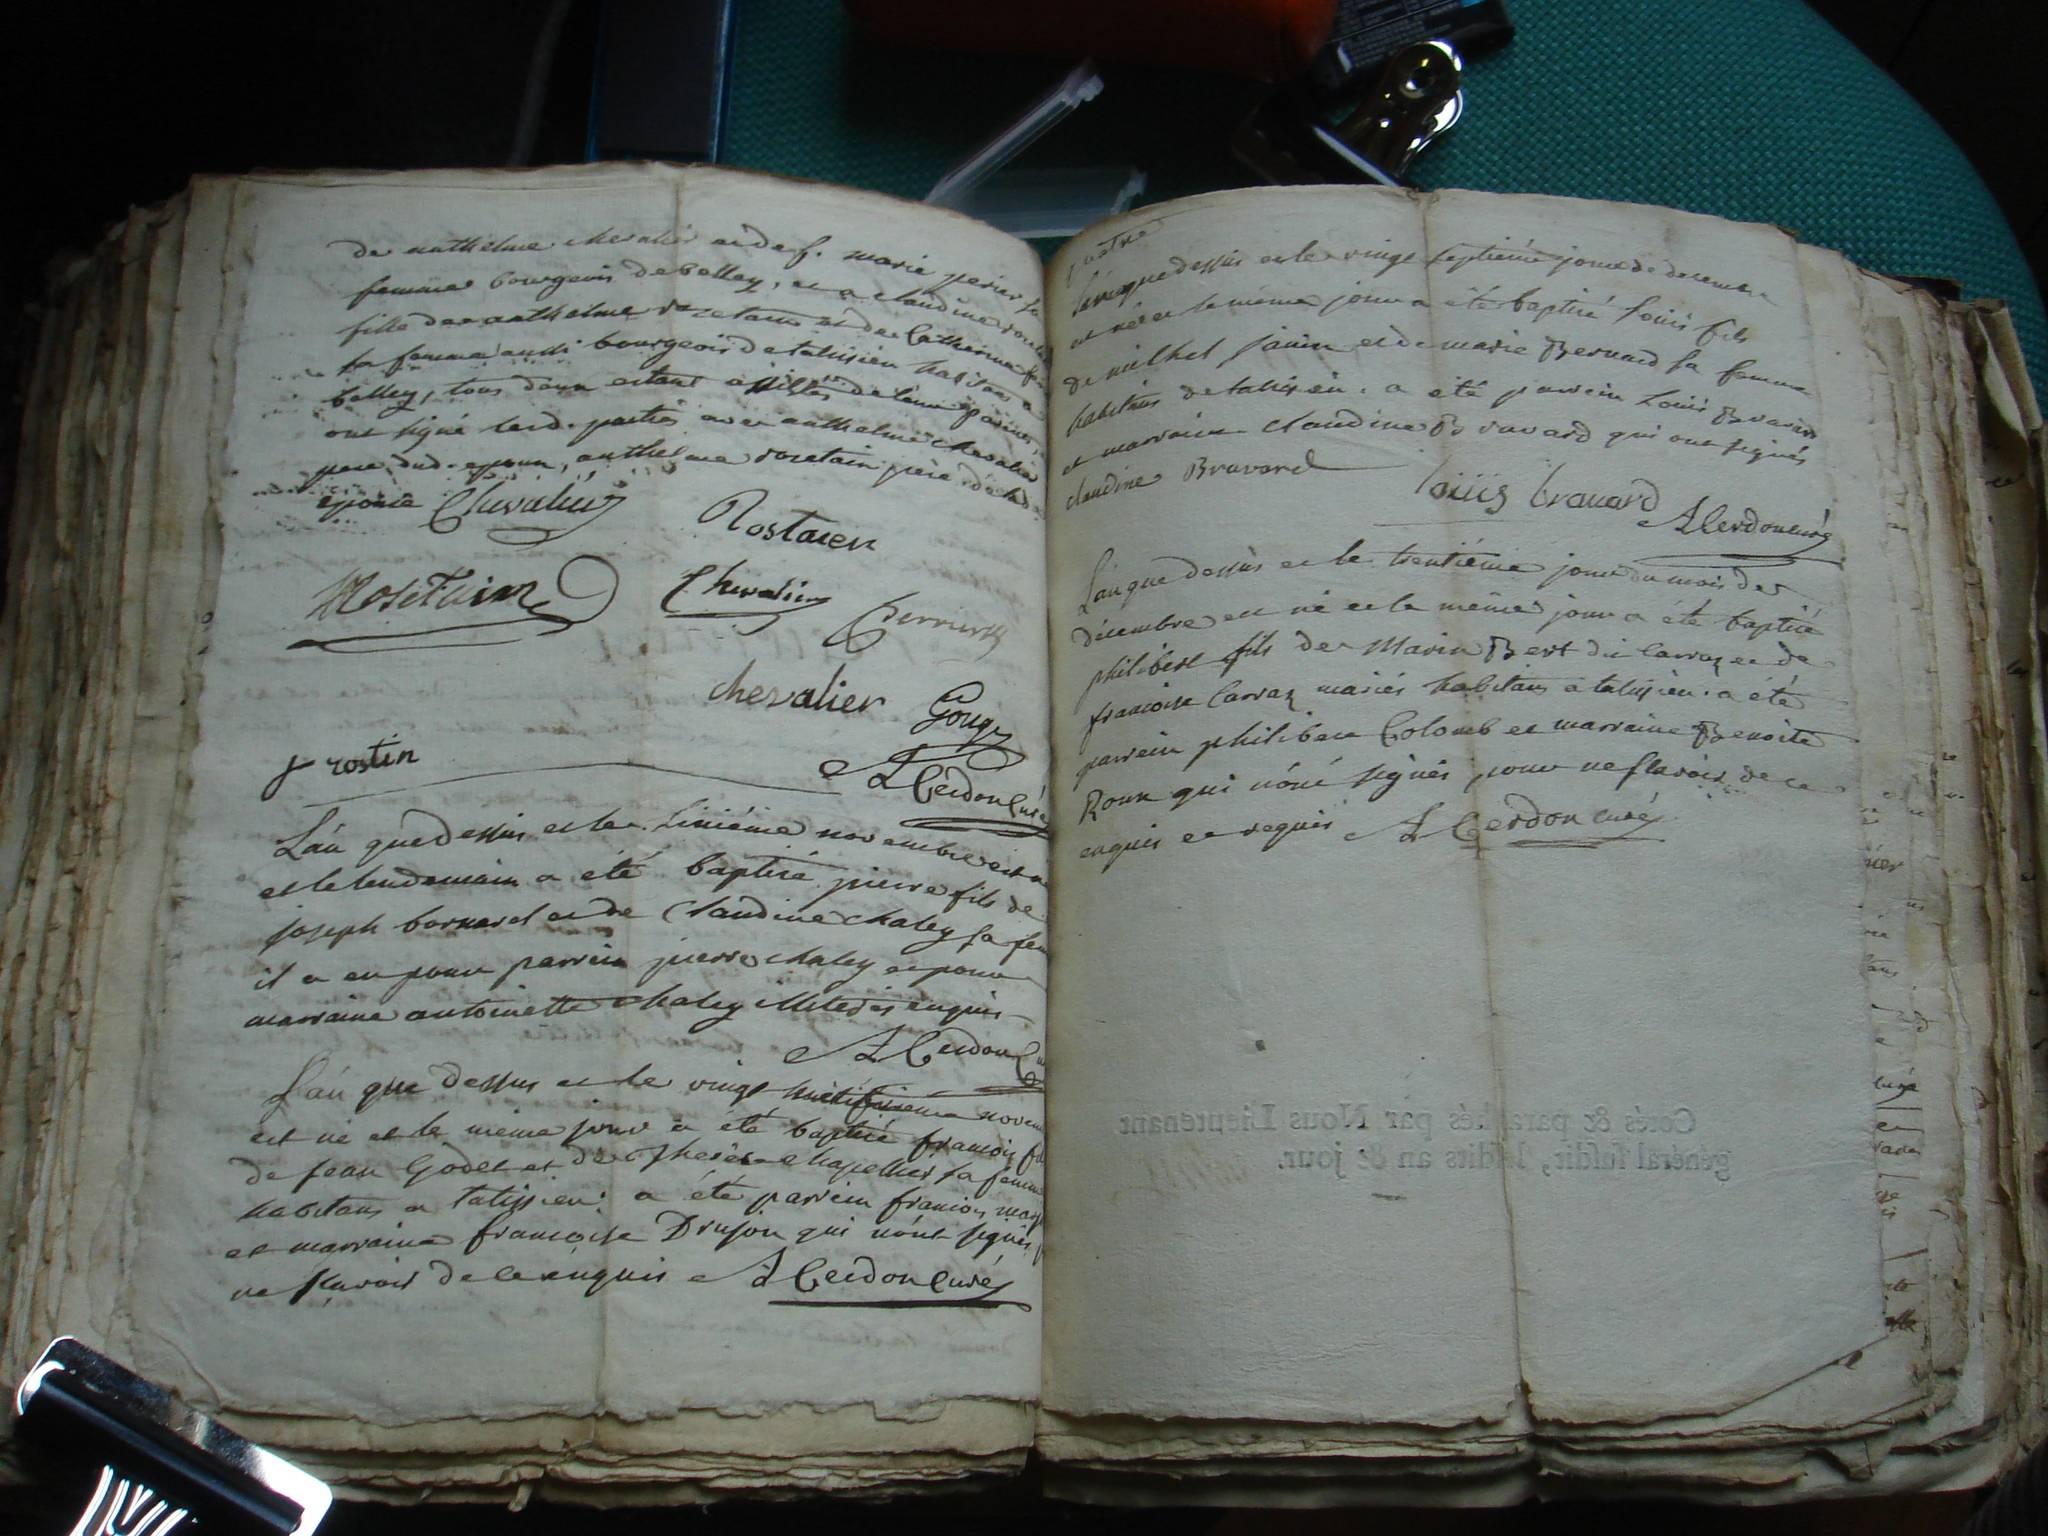 de anthelme chevalier et de f. marie perier sa
femme bourgeois de belley, et a claudine
fille de anthelme rosetain et de Catherine
sa femme aussi bourgeois de talissieu habitans a
belley, tous deux estant assistés de leurs parens,
ont signé lesd. parties avec anthelme chevalier
pere dud. epoux, anthelme rosetain père de lad.
epouse Chevalier
Rostaien
Rosetain Chevalier Perrier
chevalier Gougy
rostin
A Cerdon Curé
L'an que dessus et le sixiéme novembre est né
et le lendemain a été baptisé pierre fils de
joseph bornard et de Claudine Chaley sa fem
il a eu pour parrein pierre chaley et pour
marraine antoinette chaley illiterés enquis
A Cerdon Cu
L'an que dessus et le vingt novem
est né et le même jour a été baptisé françois fil
de jean Godet et de Therèse Chapellier sa femme
habitans a talissieu. a été parrein françois
et marraine françoise Drujon qui n'ont signés
ne sçavoir de ce enquis A Cerdon Curé
quatre
L'an que dessus et le vingt septiéme jour de decembre
est né et le même jour a été baptisé louis fils
de michel janin et de marie Bernard sa femme
habitans de talissieu. a été parrein Louis Bravard
et marraine claudine Bravard qui ont signés
claudine Bravard louis bravard
A Cerdon curé
L'an que dessus et le trentiéme jour du mois de
décembre est né et le même jour a été baptisé
philibert fils de Marin Bert dit Carraz et de
françoise Carraz mariés habitans a talissieu. a été
parrein philibert Colomb et marraine Benoite
Roux qui n'ont signés pour ne sçavoir de ce
enquis et requis A Cerdon curé
Cotés & paraphés par Nous Lieutenant
général susdit, lesdits an & jour.